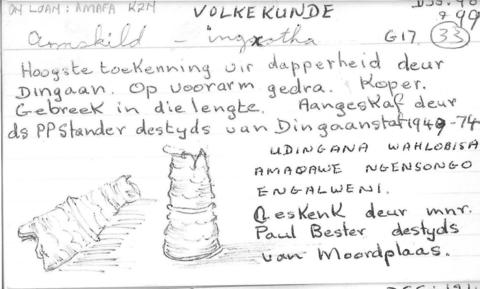 ON LOAN: AMAFA KZN
VOLKEKUNDE
99
Armskild - ingxotha G17 33
Hoogste toekenning vir dapperheid deur
Dingaan. Op voorarm gedra. Koper.
Gebreek in die lengte. Aangeskaf deur
ds PPStander destyds van Dingaanstat 1949-74
UDINGANA WAHLOBISA
AMAQAWE NGENSONGO
ENGALWENI.
Geskenk deur mnr.
Paul Bester destyds
van Moordplaas.